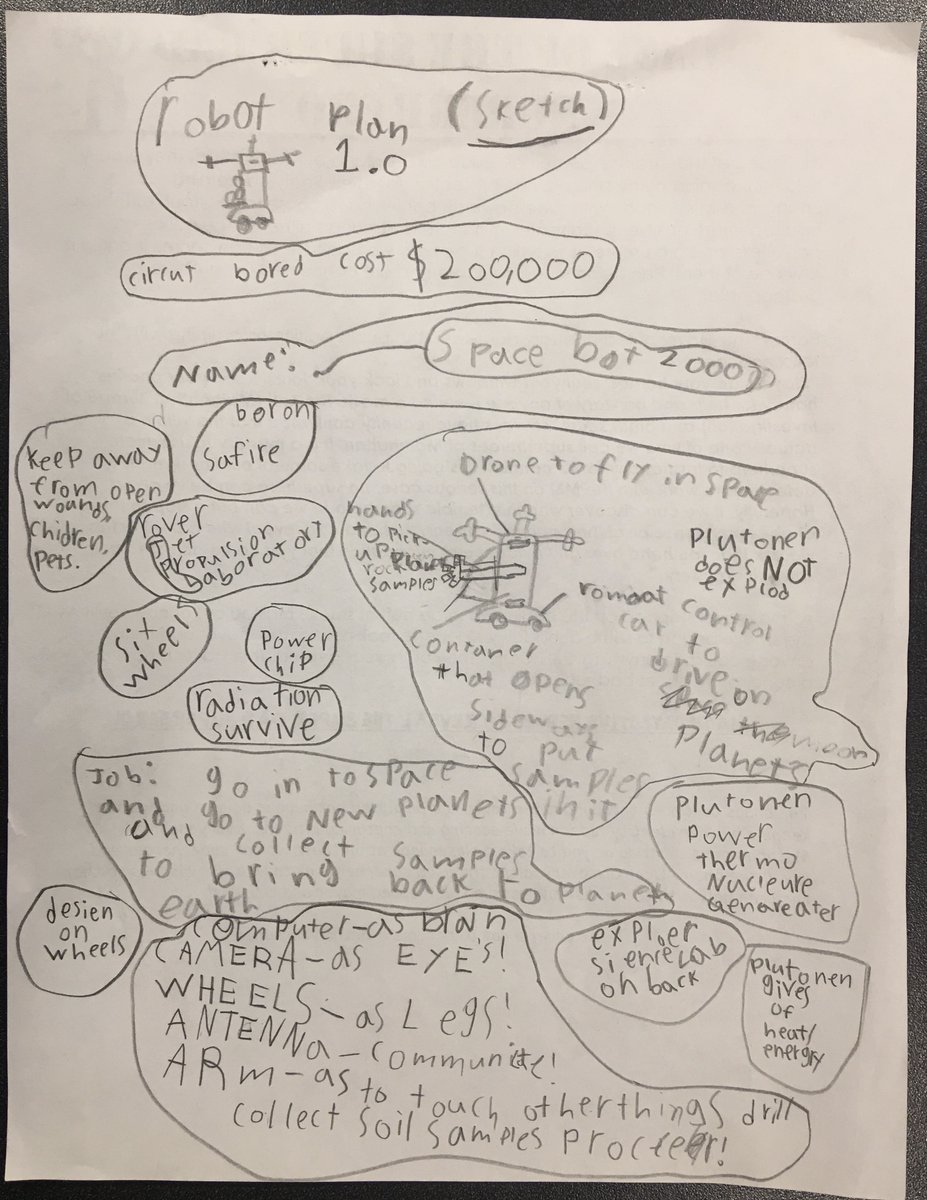 robot Plan (sketch)
1.0
circut bored cost $200,000
Name: Space bot 2000
boron
safire
Keep away
from open
wounds,
Chidren,
Pets.
rover
Jet
Propulsion
Laboratory
Six
wheels
Power
chip
radiation
survive
Drone to fly in space
hands
to Pick
up
rock
samples
Plutoner
does NOT
explod
romoat control
car to
drive on
the moon
Planets
contaner
that opens
sideways
to put
samples
in it
Job: go in to space
and go to New planets
and collect samples
to bring back to planet
earth
Plutonen
Power
thermo
Nucleure
Genoreater
desien
on
wheels
computer-as brain
CAMERA-as EYE'S!
WHEELS-as Legs!
ANTENNa-communicate!
ARm-as to touch other things drill
collect soil samples
exploer
sience Lab
on back
plutonen
gives
of
heat/
energry